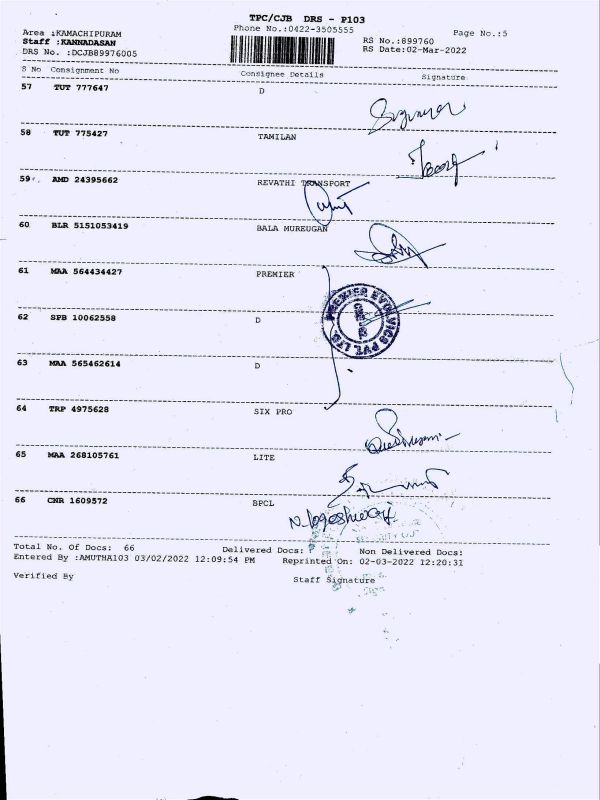 TPC/CJB DRS - P103
Phone No.:0422-3505555
Page No.:5
Area :KAMACHIPURAM
Staff :KANNADASAN
DRS No. :DCJB89976005
RS No.:899760
RS Date:02-Mar-2022
S No Consignment No Consignee Details Signature
57 TUT 777647 D
58 TUT 775427 TAMILAN
59 AMD 24395662 REVATHI TRANSPORT
60 BLR 5151053419 BALA MUREUGAN
61 MAA 564434427 PREMIER
PREMIER EVOLVICS PVT. LTD.
62 SPB 10062558 D
63 MAA 565462614 D
64 TRP 4975628 SIX PRO
65 MAA 268105761 LITE
66 CNR 1609572 BPCL
Total No. Of Docs: 66 Delivered Docs: Non Delivered Docs:
Entered By :AMUTHA103 03/02/2022 12:09:54 PM Reprinted On: 02-03-2022 12:20:31
Verified By Staff Signature